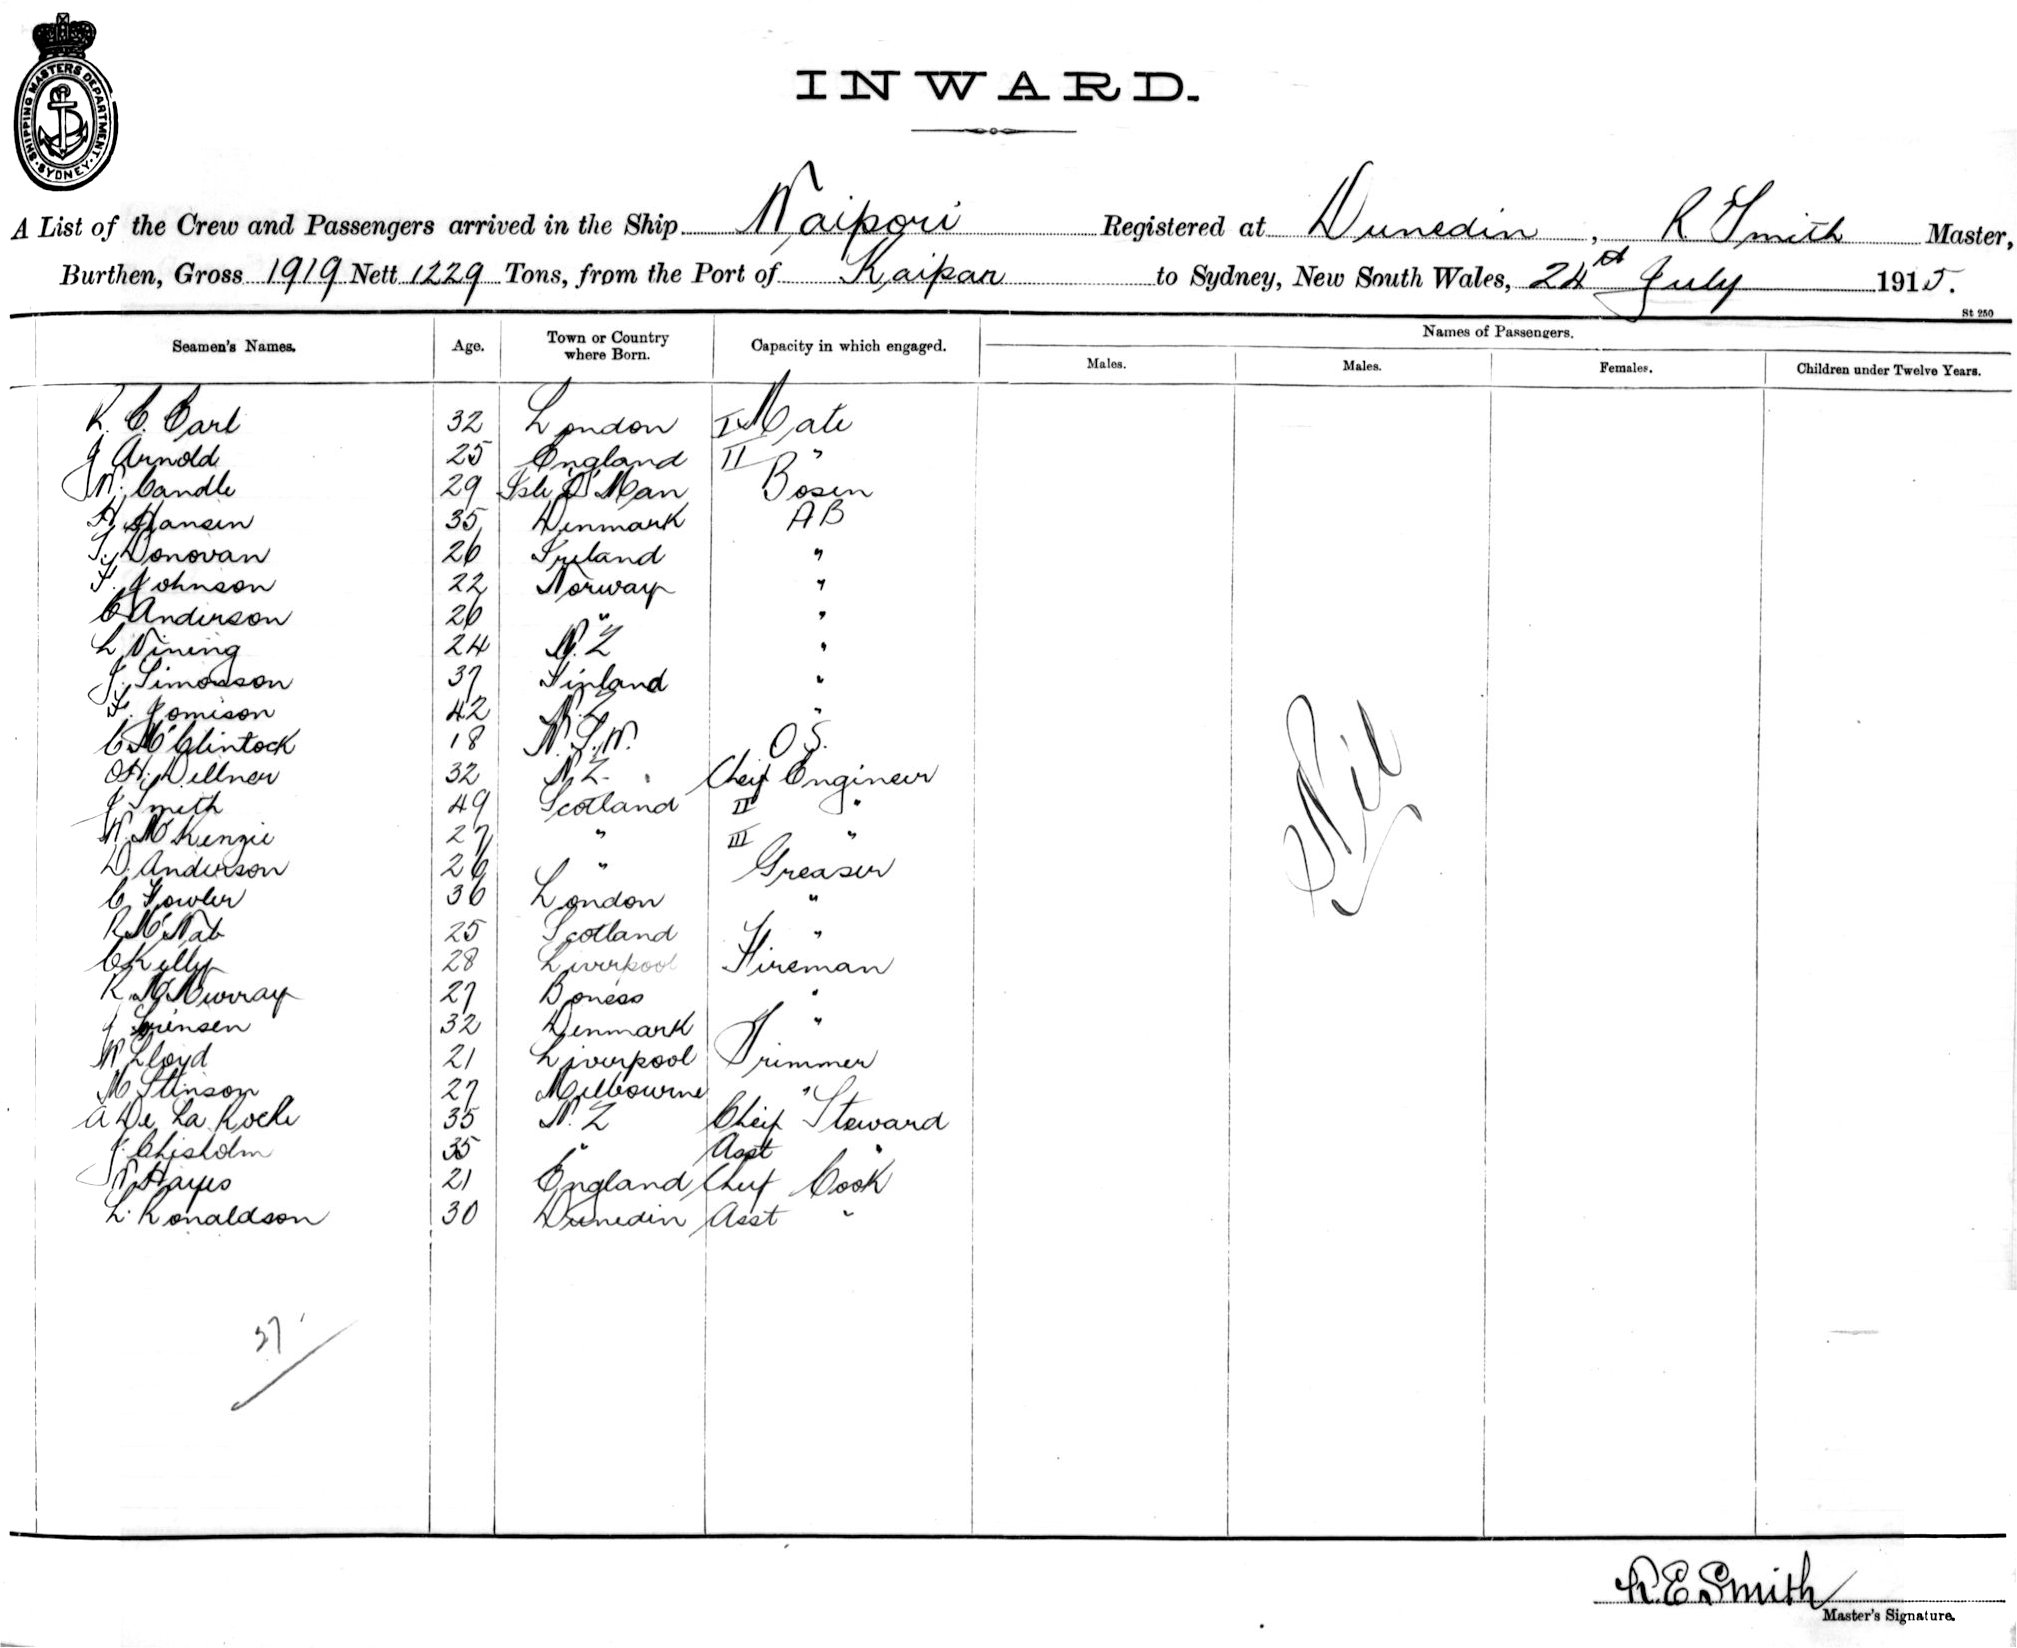 SHIPPING MASTERS DEPARTMENT. SYDNEY.
INWARD.
A List of the Crew and Passengers arrived in the Ship Waipori Registered at Dunedin, R Smith Master,
Burthen, Gross 1919 Nett 1229 Tons, from the Port of Kaipara to Sydney, New South Wales, 24th July 1915.
St 250
Seamen's Names. Age. Town or Country where Born. Capacity in which engaged. Names of Passengers.
Males. Males. Females. Children under Twelve Years.
R. C. Carl 32 London I Mate
J Arnold 25 England II "
W. Candle 29 Isle O' Man Bosen
H Hansen 35 Denmark AB
T. Donovan 26 Ireland "
F. Johnson 22 Norway "
C Anderson 26 " "
L Vining 24 N.Z "
J. Simosson 37 Finland "
F. Jomison 42 N.Z "
C McClintock 18 N.S.W. O.S.
O.H. Dellner 32 N.Z. Cheif Engineer
J Smith 49 Scotland II "
W. McKenzie 27 " III "
D. Anderson 26 " Greaser
C Fowler 36 London "
R McNab 25 Scotland "
C Kelly 28 Liverpool Fireman
R. McMurray 27 Boness "
J Sorensen 32 Denmark "
W Lloyd 21 Liverpool Trimmer
M Stinson 27 Melbourne "
A De La Roche 35 N.Z Cheif Steward
J. Chisholm 35 " Asst "
W Hayes 21 England Cheif Cook
L. Ronaldson 30 Dunedin Asst "
Nil
27
R.E Smith
Master's Signature.